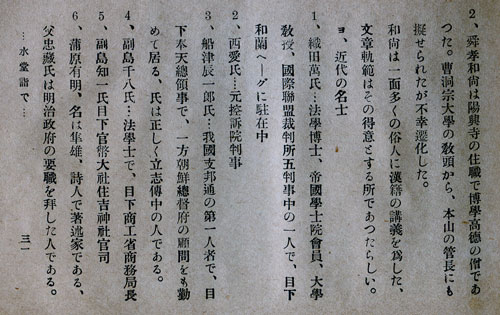 2、舜孝和尚は陽興寺の住職で博學高德の僧であ
つた。曹洞宗大學の敎頭から、本山の管長にも
擬せられたが不幸遷化した。
和尚は一面多くの俗人に漢籍の講義を爲した、
文章軌範はその得意とする所であつたらしい。
ヨ、近代の名士
1、織田萬氏…法學博士、帝國學士院會員、大學
敎授、國際聯盟裁判所五判事中の一人で、目下
和蘭ヘーグに駐在中
2、西愛氏…元控訴院判事
3、船津辰一郎氏…我國支那通の第一人者で、目
下奉天總領事で、一方朝鮮總督府の顧問をも勤
めて居る、氏は正しく立志傳中の人である。
4、副島千八氏…法學士で、目下商工省商務局長
5、副島知一氏目下官幣大社住吉神社官司
6、蒲原有明、名は隼雄、詩人で著述家である、
父忠藏氏は明治政府の要職を拜した人である。
…水堂詣で…
三一